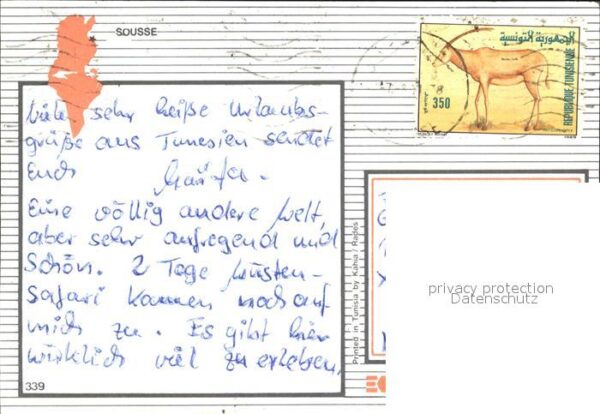 SOUSSE
sehr heiße Urlaubs-
grüße aus Tunesien sendet
Euch
Eine völlig andere Welt,
aber sehr aufregend und
Schön. 2 Tage Wüsten-
safari kommen noch auf
mich zu. Es gibt hier
wirklich viel zu erleben.
339
الجمهورية التونسية
REPUBLIQUE TUNISIENNE
350
Printed in Tunisia by Kahia / Rades
privacy protection
Datenschutz